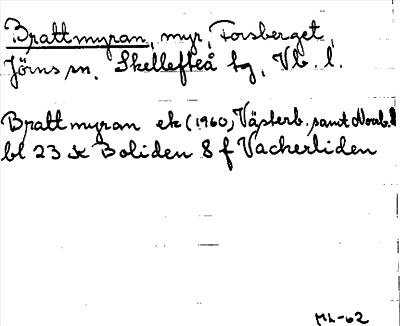 Brattmyran, myr, Forsberget,
Jörns sn. Skellefteå tg, Vb. l.
Brattmyran ek (1960, Västerb. samt Norrb. l
bl 23 sk Boliden 8 f Vackerliden
ML-62